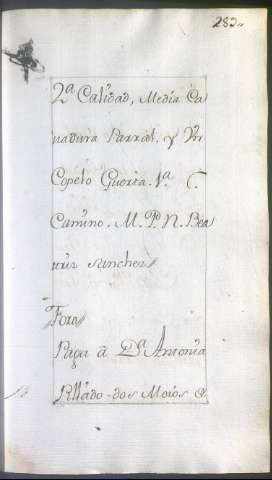 282,,
2ª Calidad, Media Ca
vadura Parral, y Vn
Copelo Guerta. 1ª C.
Camino. M. P. N. Bea
triz Sanchez//
Foro//
Paga â Dª Antonia
Pillado dos Moios &